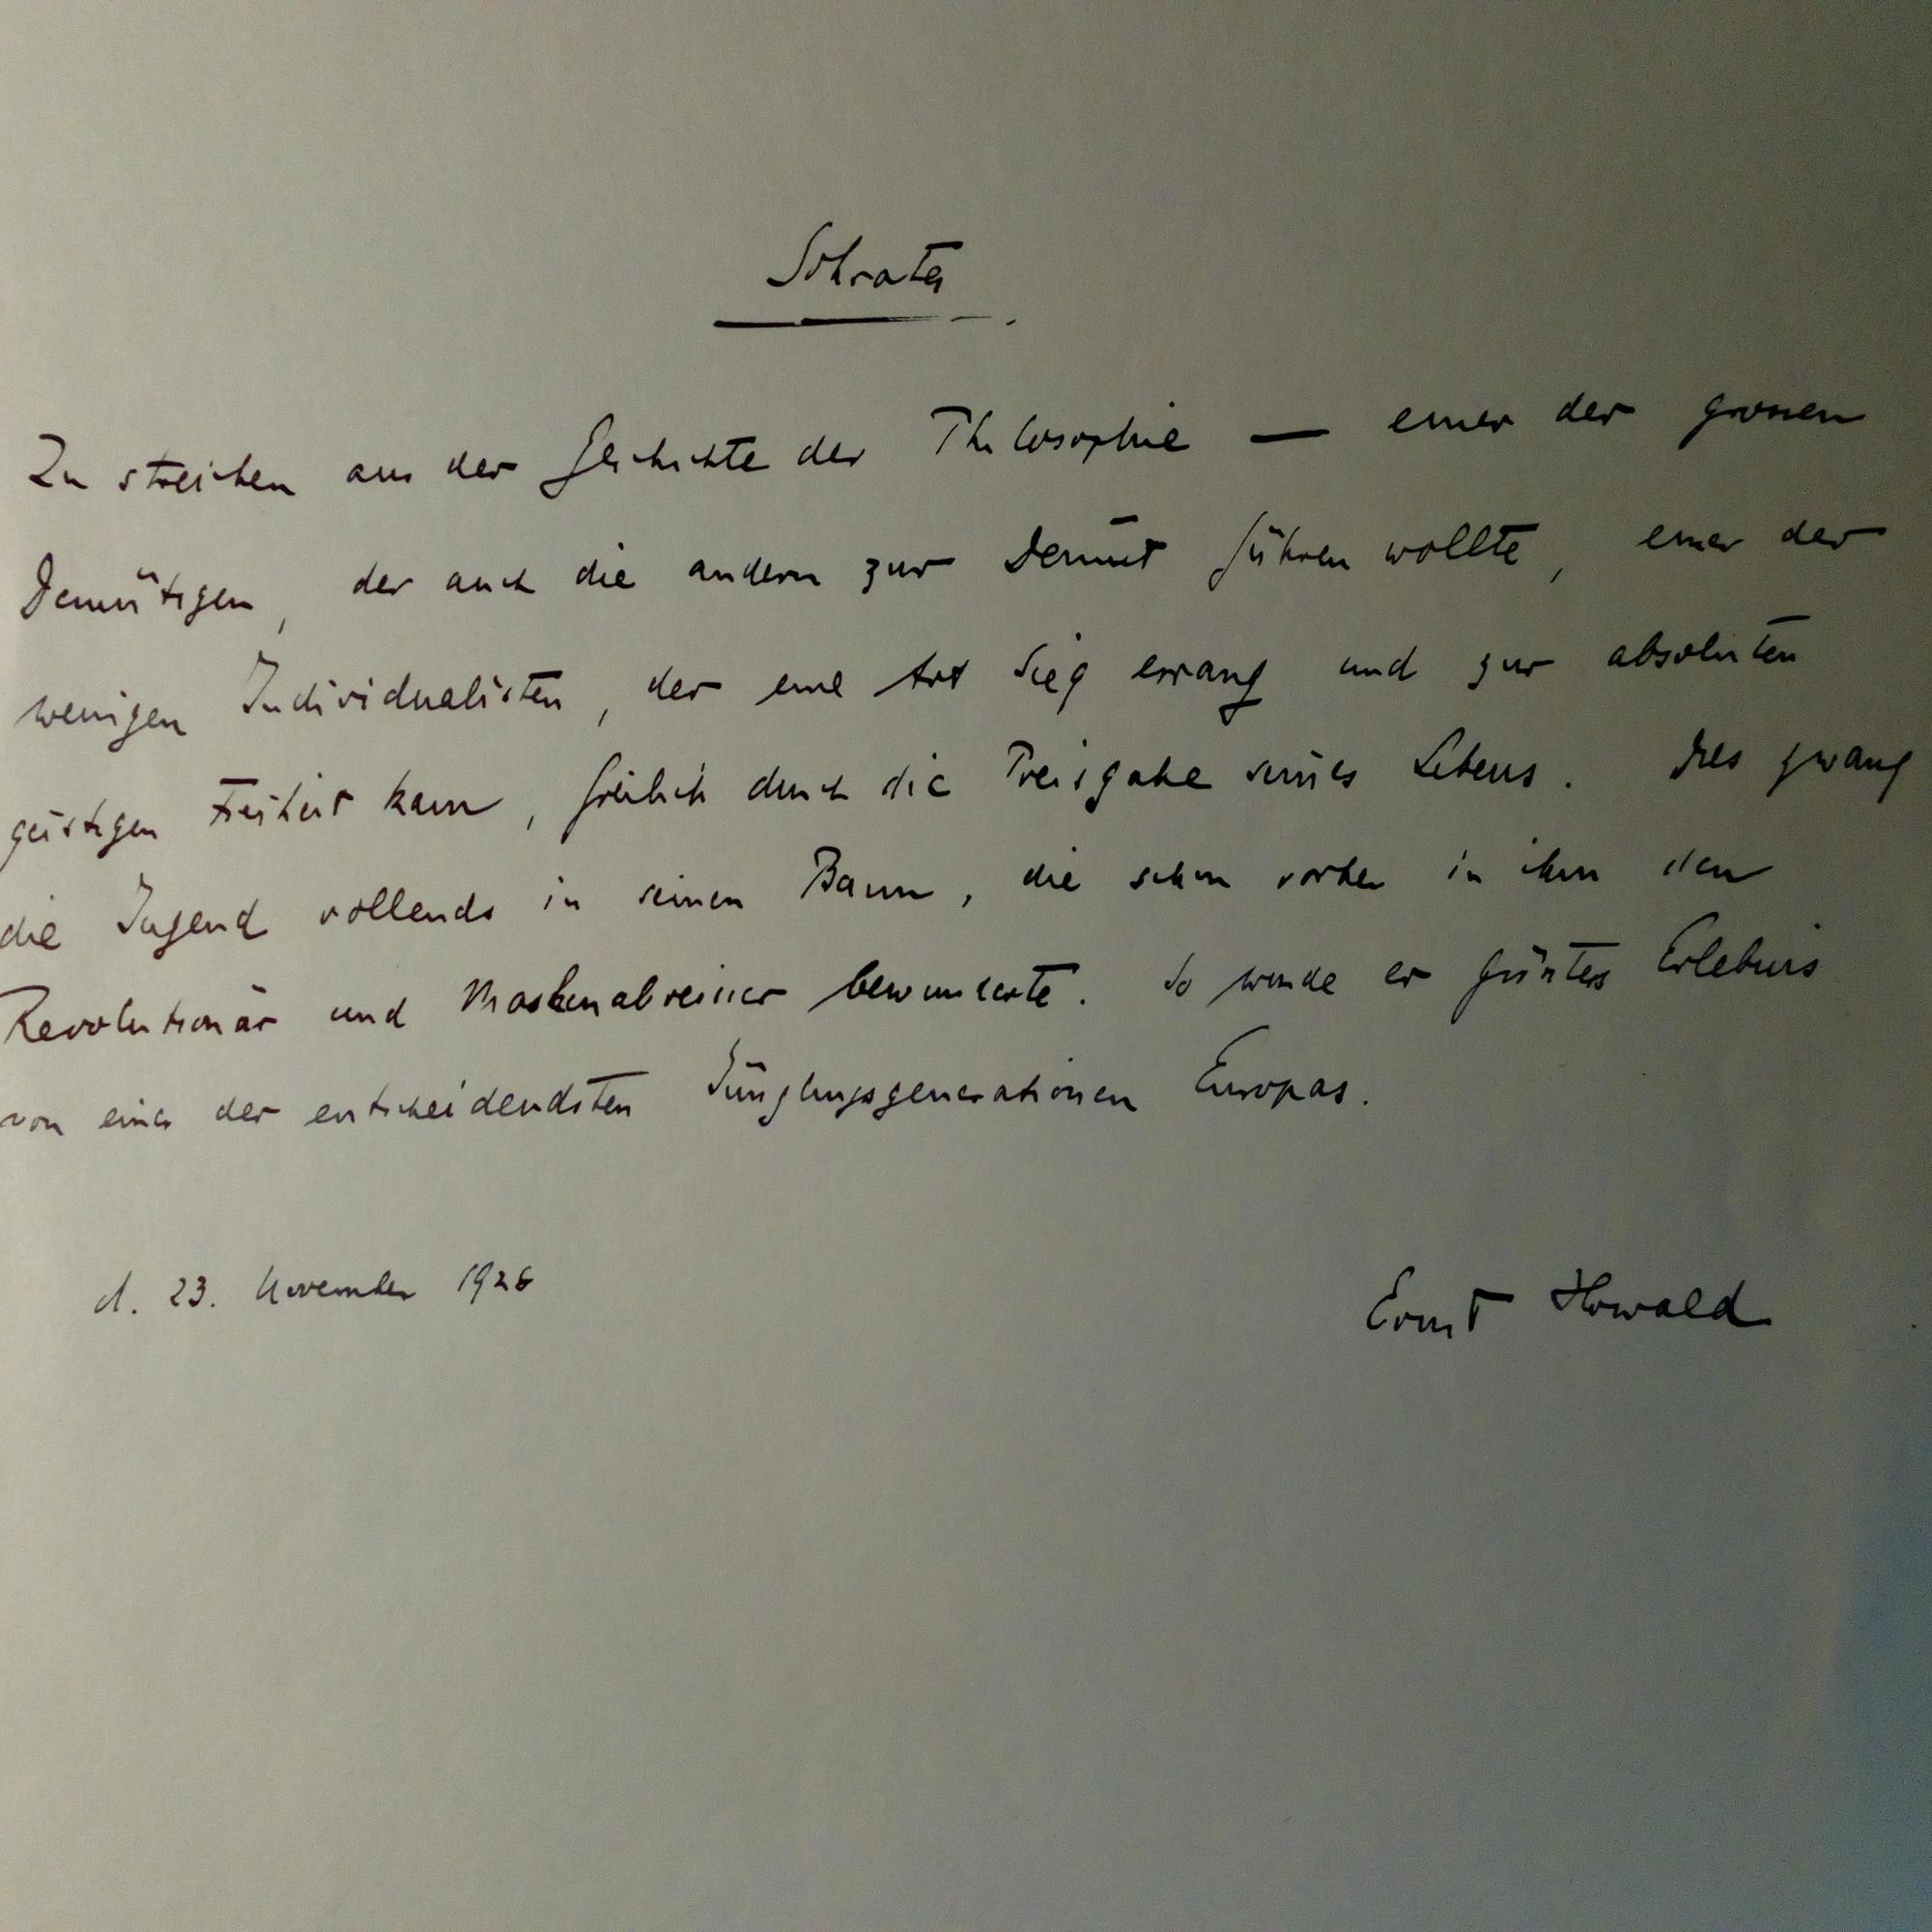 Sokrates
Zu streichen aus der Geschichte der Philosophie — einer der grossen
Demütigen, der auch die andern zur Demut führen wollte, einer der
wenigen Individualisten, der eine Art Sieg errang und zur absoluten
geistigen Freiheit kam, freilich durch die Preisgabe seines Lebens. Dies zwang
die Jugend vollends in seinen Bann, die schon vorher in ihm den
Revolutionär und Maskenabreisser bewunderte. So wurde er grösstes Erlebnis
von einer der entscheidendsten Jünglingsgenerationen Europas.
d. 23. November 1926
Ernst Howald